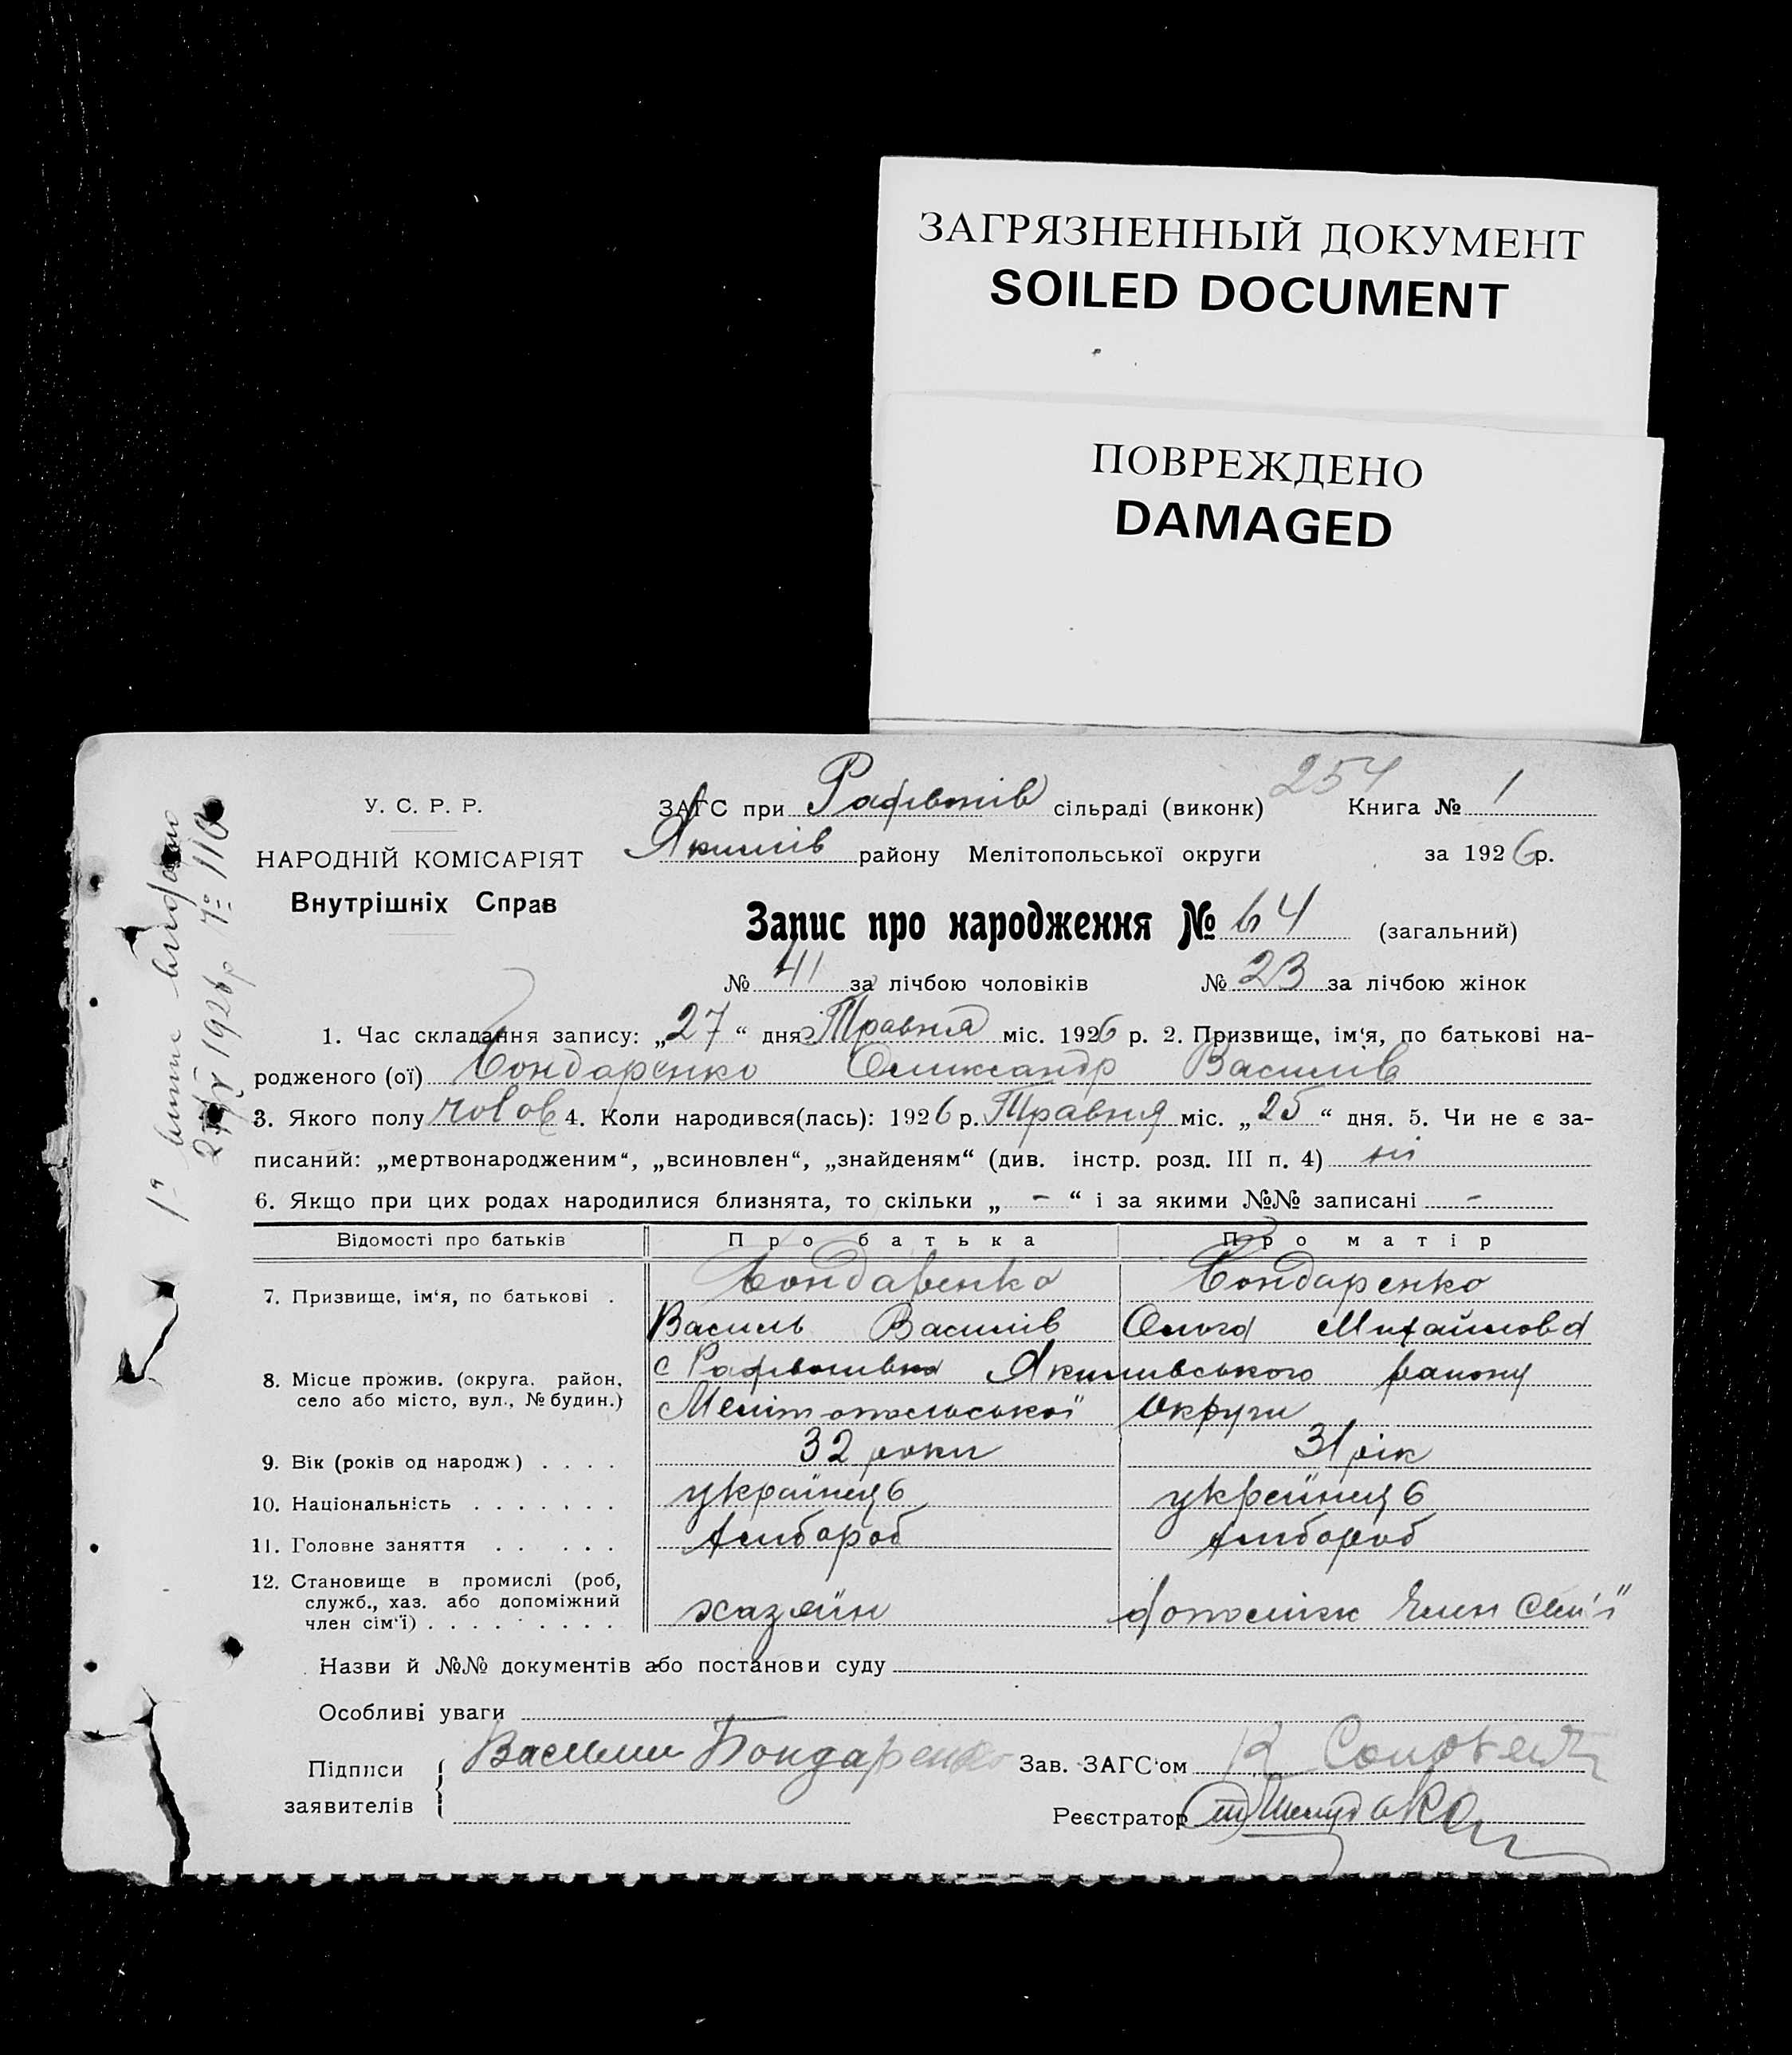 ЗАГРЯЗНЕННЫЙ ДОКУМЕНТ
SOILED DOCUMENT
ПОВРЕЖДЕНО
DAMAGED
254
У. С. Р. Р.
НАРОДНІЙ КОМІСАРІЯТ
Внутрішніх Справ
ЗАГС при сільраді (виконк) Книга № 1
Якимів району Мелітопольської округи за 1926 р.
Запис про народження № 64 (загальний)
№ 41 за лічбою чоловіків № 23 за лічбою жінок
1. Час складання запису: „27“ дня Травня міс. 1926 р. 2. Призвище, ім'я, по батькові на-
родженого (ої) Бондаренко Олександр Василів
3. Якого полу чолов 4. Коли народився(лась): 1926 р. Травня міс. „25“ дня. 5. Чи не є за-
писаний: „мертвонародженим“, „всиновлен“, „знайденям“ (див. інстр. розд. III п. 4) ні
6. Якщо при цих родах народилися близнята, то скільки „ - “ і за якими №№ записані -
Відомості про батьків Про батька Про матір
7. Призвище, ім'я, по батькові . Бондаренко Бондаренко
Василь Василів Ольга Михайловна
8. Місце прожив. (округа. район, село або місто, вул., № будин.) с Якимивського району
Мелітопольської округи
9. Вік (років од народж) . . . . 32 роки 31 рік
10. Національність . . . . . . . українць українць
11. Головне заняття . . . . . хлібороб хлібороб
12. Становище в промислі (роб, служб., хаз. або допоміжний член сім'ї) . . . . . . . . хазяїн допоміжн член сем'ї
Назви й №№ документів або постанови суду
Особливі уваги
Підписи заявителів Василий Бондаренко Зав. ЗАГС'ом
Реєстратор